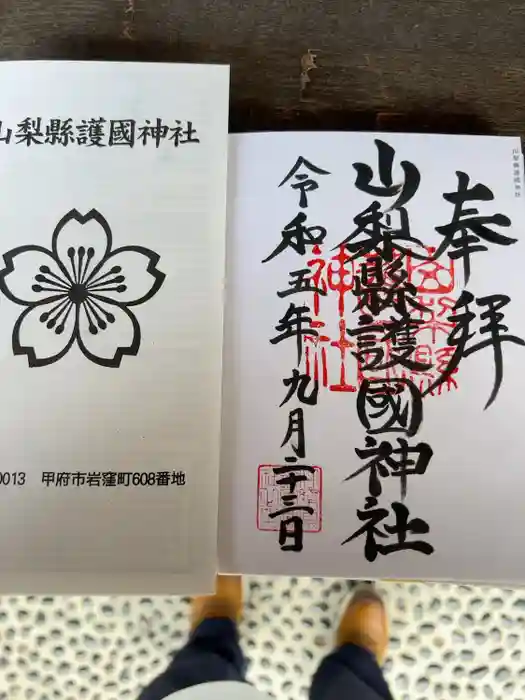 山梨縣護國神社
0013 甲府市岩窪町608番地
山梨縣護國神社
奉拝
山梨縣護國神社
令和五年九月二十三日